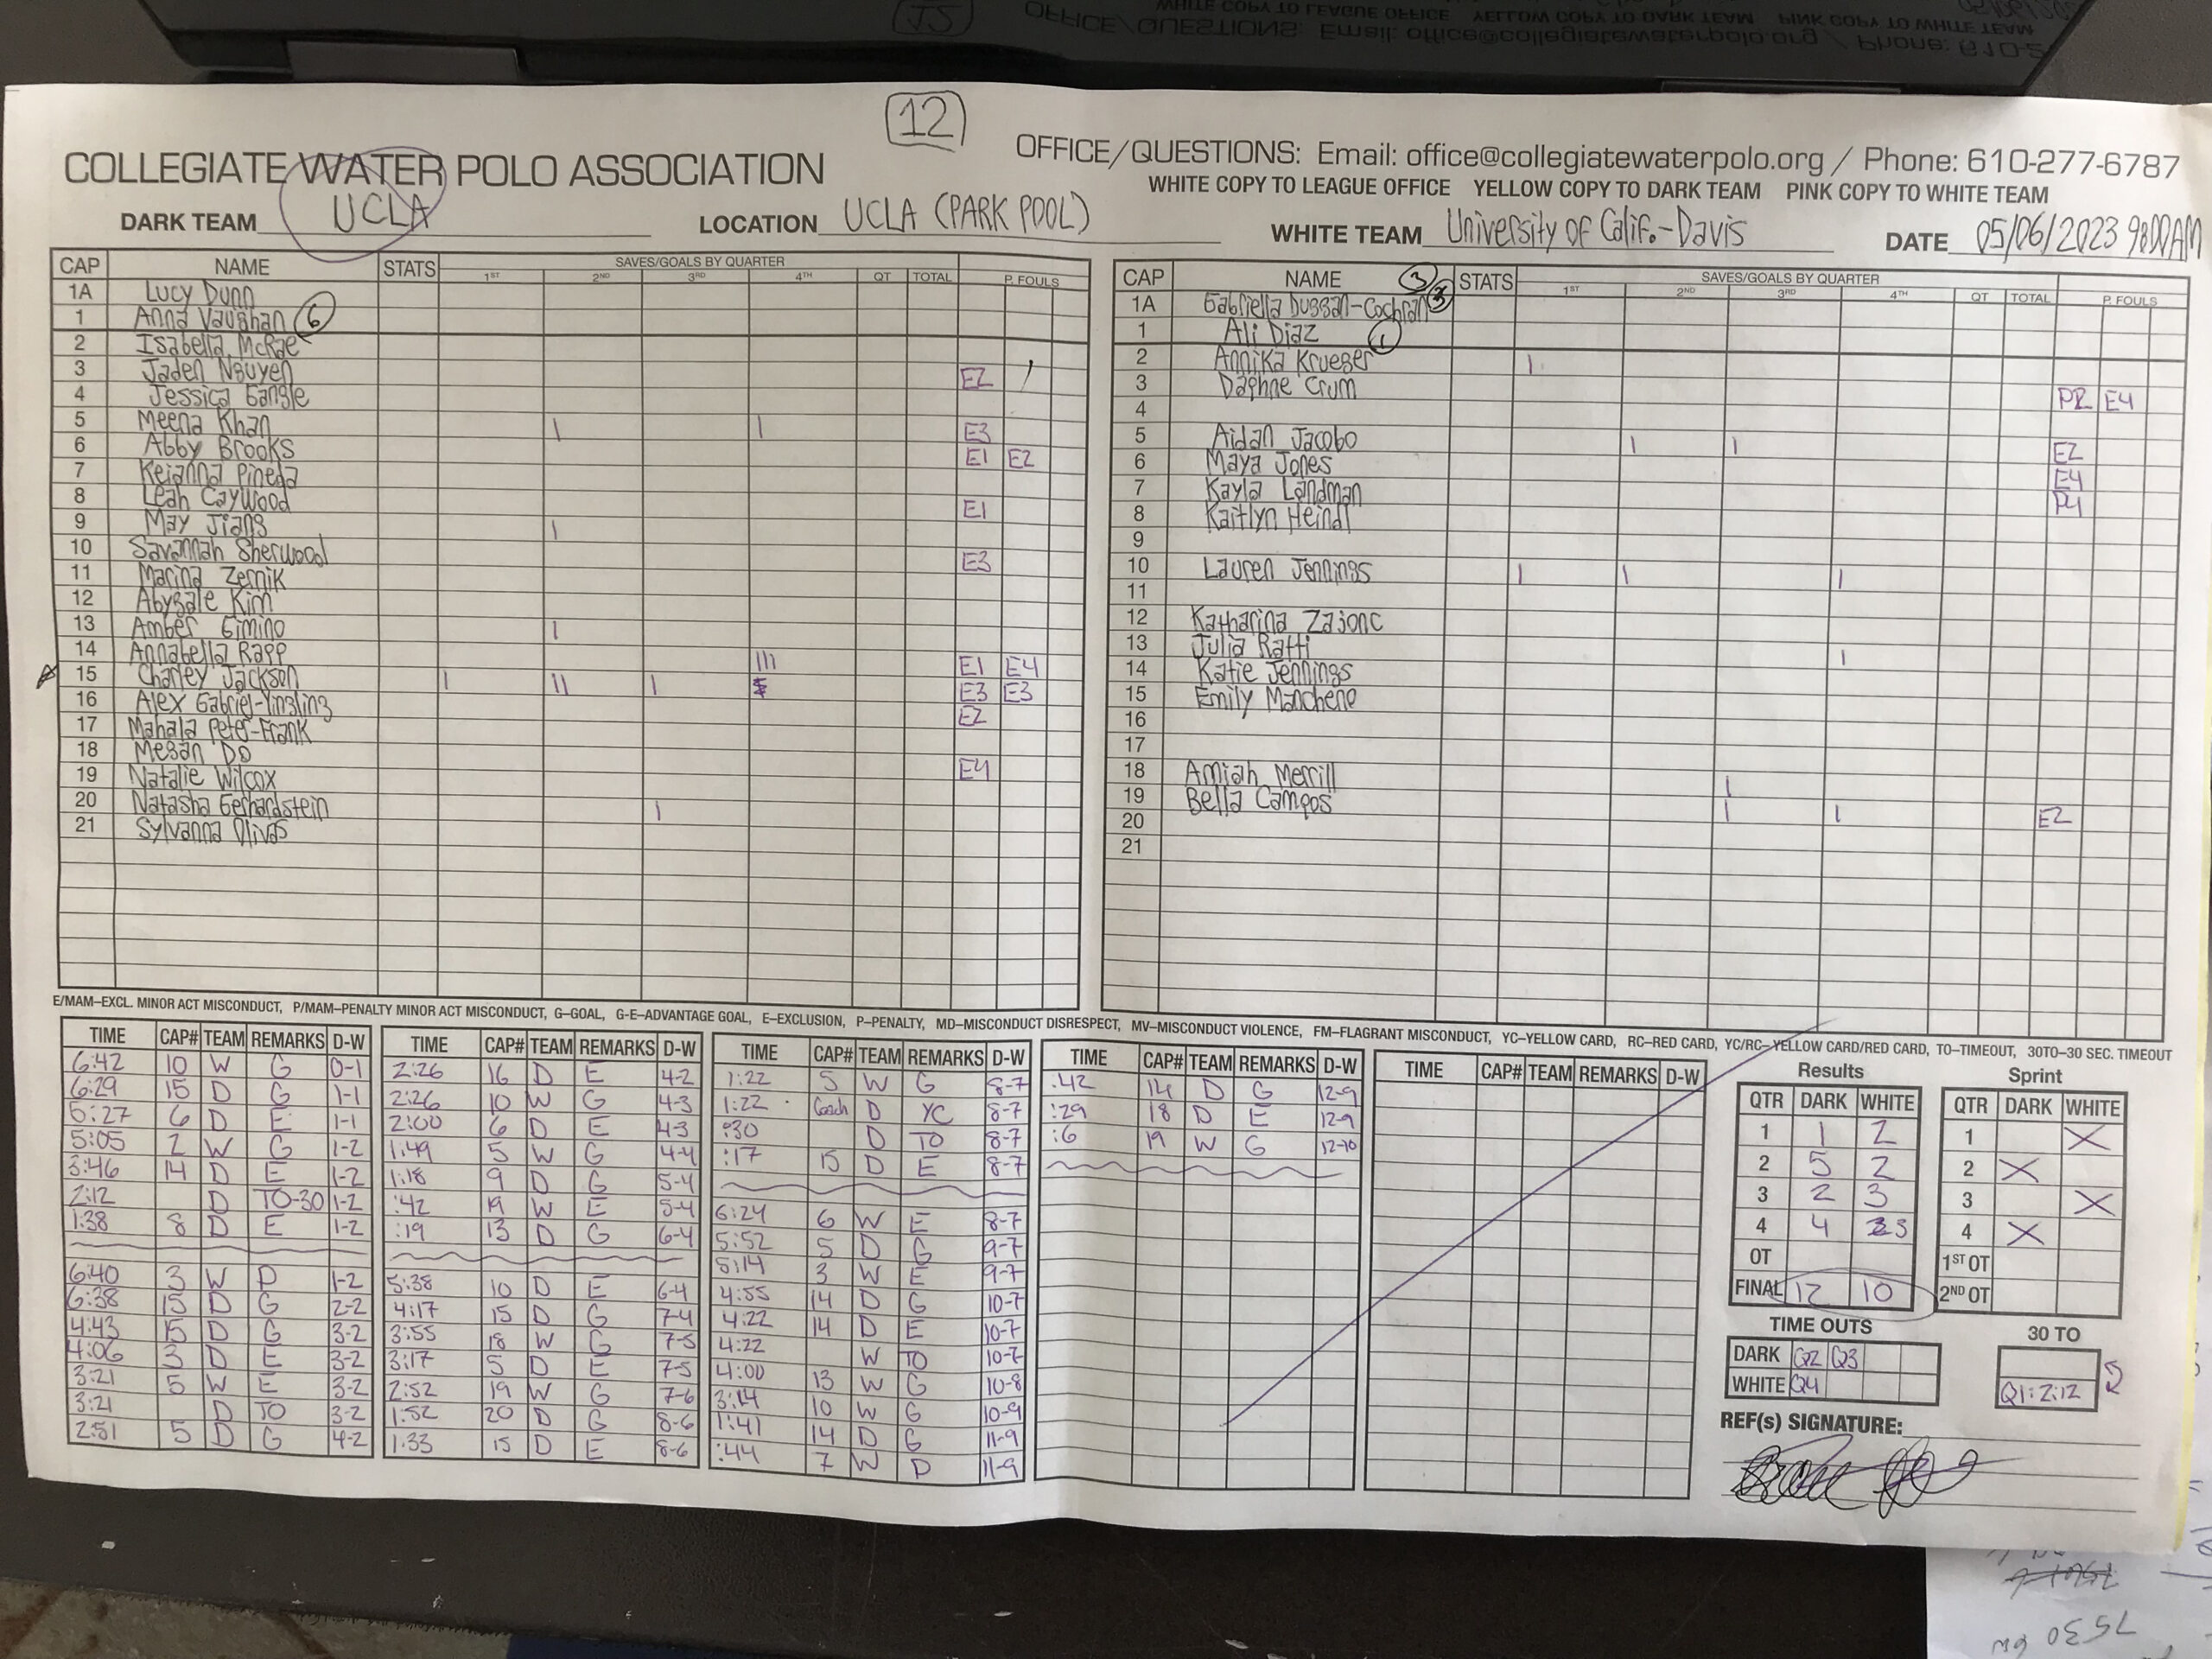 12
COLLEGIATE WATER POLO ASSOCIATION
OFFICE/QUESTIONS: Email: office@collegiatewaterpolo.org / Phone: 610-277-6787
WHITE COPY TO LEAGUE OFFICE YELLOW COPY TO DARK TEAM PINK COPY TO WHITE TEAM
DARK TEAM UCLA LOCATION UCLA (PARK POOL) WHITE TEAM University of Calif.-Davis DATE 05/06/2023 9:00AM
CAP NAME STATS SAVES/GOALS BY QUARTER 1ST 2ND 3RD 4TH QT TOTAL P. FOULS
1A Lucy Dunn
1 Anna Vaughan 6
2 Isabella McRae
3 Jaden Nguyen E2 /
4 Jessica Gangle
5 Meena Khan | | E3
6 Abby Brooks E1 E2
7 Keianna Pineda
8 Leah Caywood E1
9 May Jiang |
10 Savannah Sherwood E3
11 Marina Zernik
12 Abygale Kim
13 Amber Gimino |
14 Annabella Rapp ||| E1 E4
15 Charley Jackson | || | E3 E3
16 Alex Gabriel-Yingling E2
17 Mahala Peter-Frank
18 Megan Do E4
19 Natalie Wilcox
20 Natasha Gerhardstein |
21 Sylvanna Olivas
CAP NAME 3 STATS SAVES/GOALS BY QUARTER 1ST 2ND 3RD 4TH QT TOTAL P. FOULS
1A Gabriella Duggan-Cochran 3
1 Ali Diaz 1
2 Annika Krueger |
3 Daphne Crum P2 E4
4
5 Aidan Jacobo | | E2
6 Maya Jones E4
7 Kayla Landman P4
8 Kaitlyn Heindl
9
10 Lauren Jennings | | |
11
12 Katharina Zajonc
13 Julia Ratti |
14 Katie Jennings
15 Emily Manchene
16
17
18 Amiah Merrill |
19 Bella Campos | | E2
20
21
E/MAM–EXCL. MINOR ACT MISCONDUCT, P/MAM–PENALTY MINOR ACT MISCONDUCT, G–GOAL, G-E–ADVANTAGE GOAL, E–EXCLUSION, P–PENALTY, MD–MISCONDUCT DISRESPECT, MV–MISCONDUCT VIOLENCE, FM–FLAGRANT MISCONDUCT, YC–YELLOW CARD, RC–RED CARD, YC/RC–YELLOW CARD/RED CARD, TO–TIMEOUT, 30TO–30 SEC. TIMEOUT
TIME CAP# TEAM REMARKS D-W
6:42 10 W G 0-1
6:29 15 D G 1-1
5:27 6 D E 1-1
5:05 2 W G 1-2
3:46 14 D E 1-2
2:12 D TO-30 1-2
1:38 8 D E 1-2
6:40 3 W P 1-2
6:38 15 D G 2-2
4:43 15 D G 3-2
4:06 3 D E 3-2
3:21 5 W E 3-2
3:21 D TO 3-2
2:51 5 D G 4-2
TIME CAP# TEAM REMARKS D-W
2:26 16 D E 4-2
2:26 10 W G 4-3
2:00 6 D E 4-3
1:49 5 W G 4-4
1:18 9 D G 5-4
:42 19 W E 5-4
:19 13 D G 6-4
5:38 10 D E 6-4
4:17 15 D G 7-4
3:55 18 W G 7-5
3:17 5 D E 7-5
2:52 19 W G 7-6
1:52 20 D G 8-6
1:33 15 D E 8-6
TIME CAP# TEAM REMARKS D-W
1:22 5 W G 8-7
1:22 Coach D YC 8-7
:30 D TO 8-7
:17 15 D E 8-7
6:24 6 W E 8-7
5:52 5 D G 9-7
5:14 3 W E 9-7
4:55 14 D G 10-7
4:22 14 D E 10-7
4:22 W TO 10-7
4:00 13 W G 10-8
3:14 10 W G 10-9
1:41 14 D G 11-9
:44 7 W P 11-9
TIME CAP# TEAM REMARKS D-W
:42 14 D G 12-9
:29 18 D E 12-9
:6 19 W G 12-10
TIME CAP# TEAM REMARKS D-W
Results
QTR DARK WHITE
1 1 2
2 5 2
3 2 3
4 4 3
OT
FINAL 12 10
Sprint
QTR DARK WHITE
1 X
2 X
3 X
4 X
1ST OT
2ND OT
TIME OUTS
DARK Q2 Q3
WHITE Q4
30 TO
Q1:2:12
REF(s) SIGNATURE: